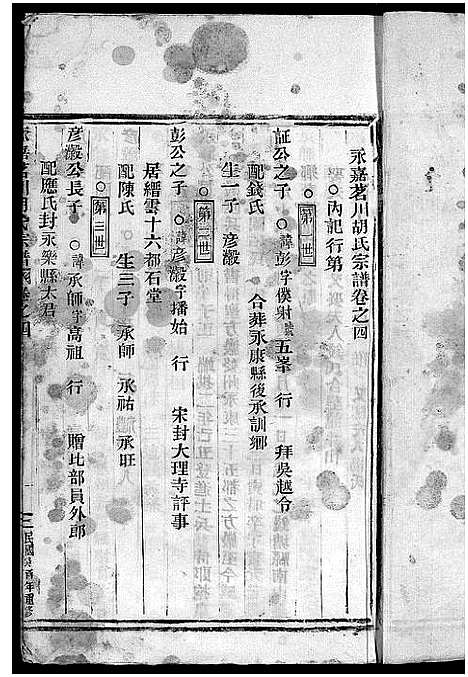 永嘉茗川胡氏宗譜卷之四
○內記行第
○第一世
証公之子 ○諱彭字僕射號五峯 行一 拜吳越令
配錢氏 合葬永康縣後承訓鄉
生一子 彥澂
○第二世
彭公之子 ○諱彥澂字播始 行 宋封大理寺評事
居縉雲十六都石堂
配陳氏 ○生三子 承師 承祐 承旺
○第三世
彥澂公長子 ○諱承師字高祖 行 贈比部員外郎
配應氏封永樂縣太君